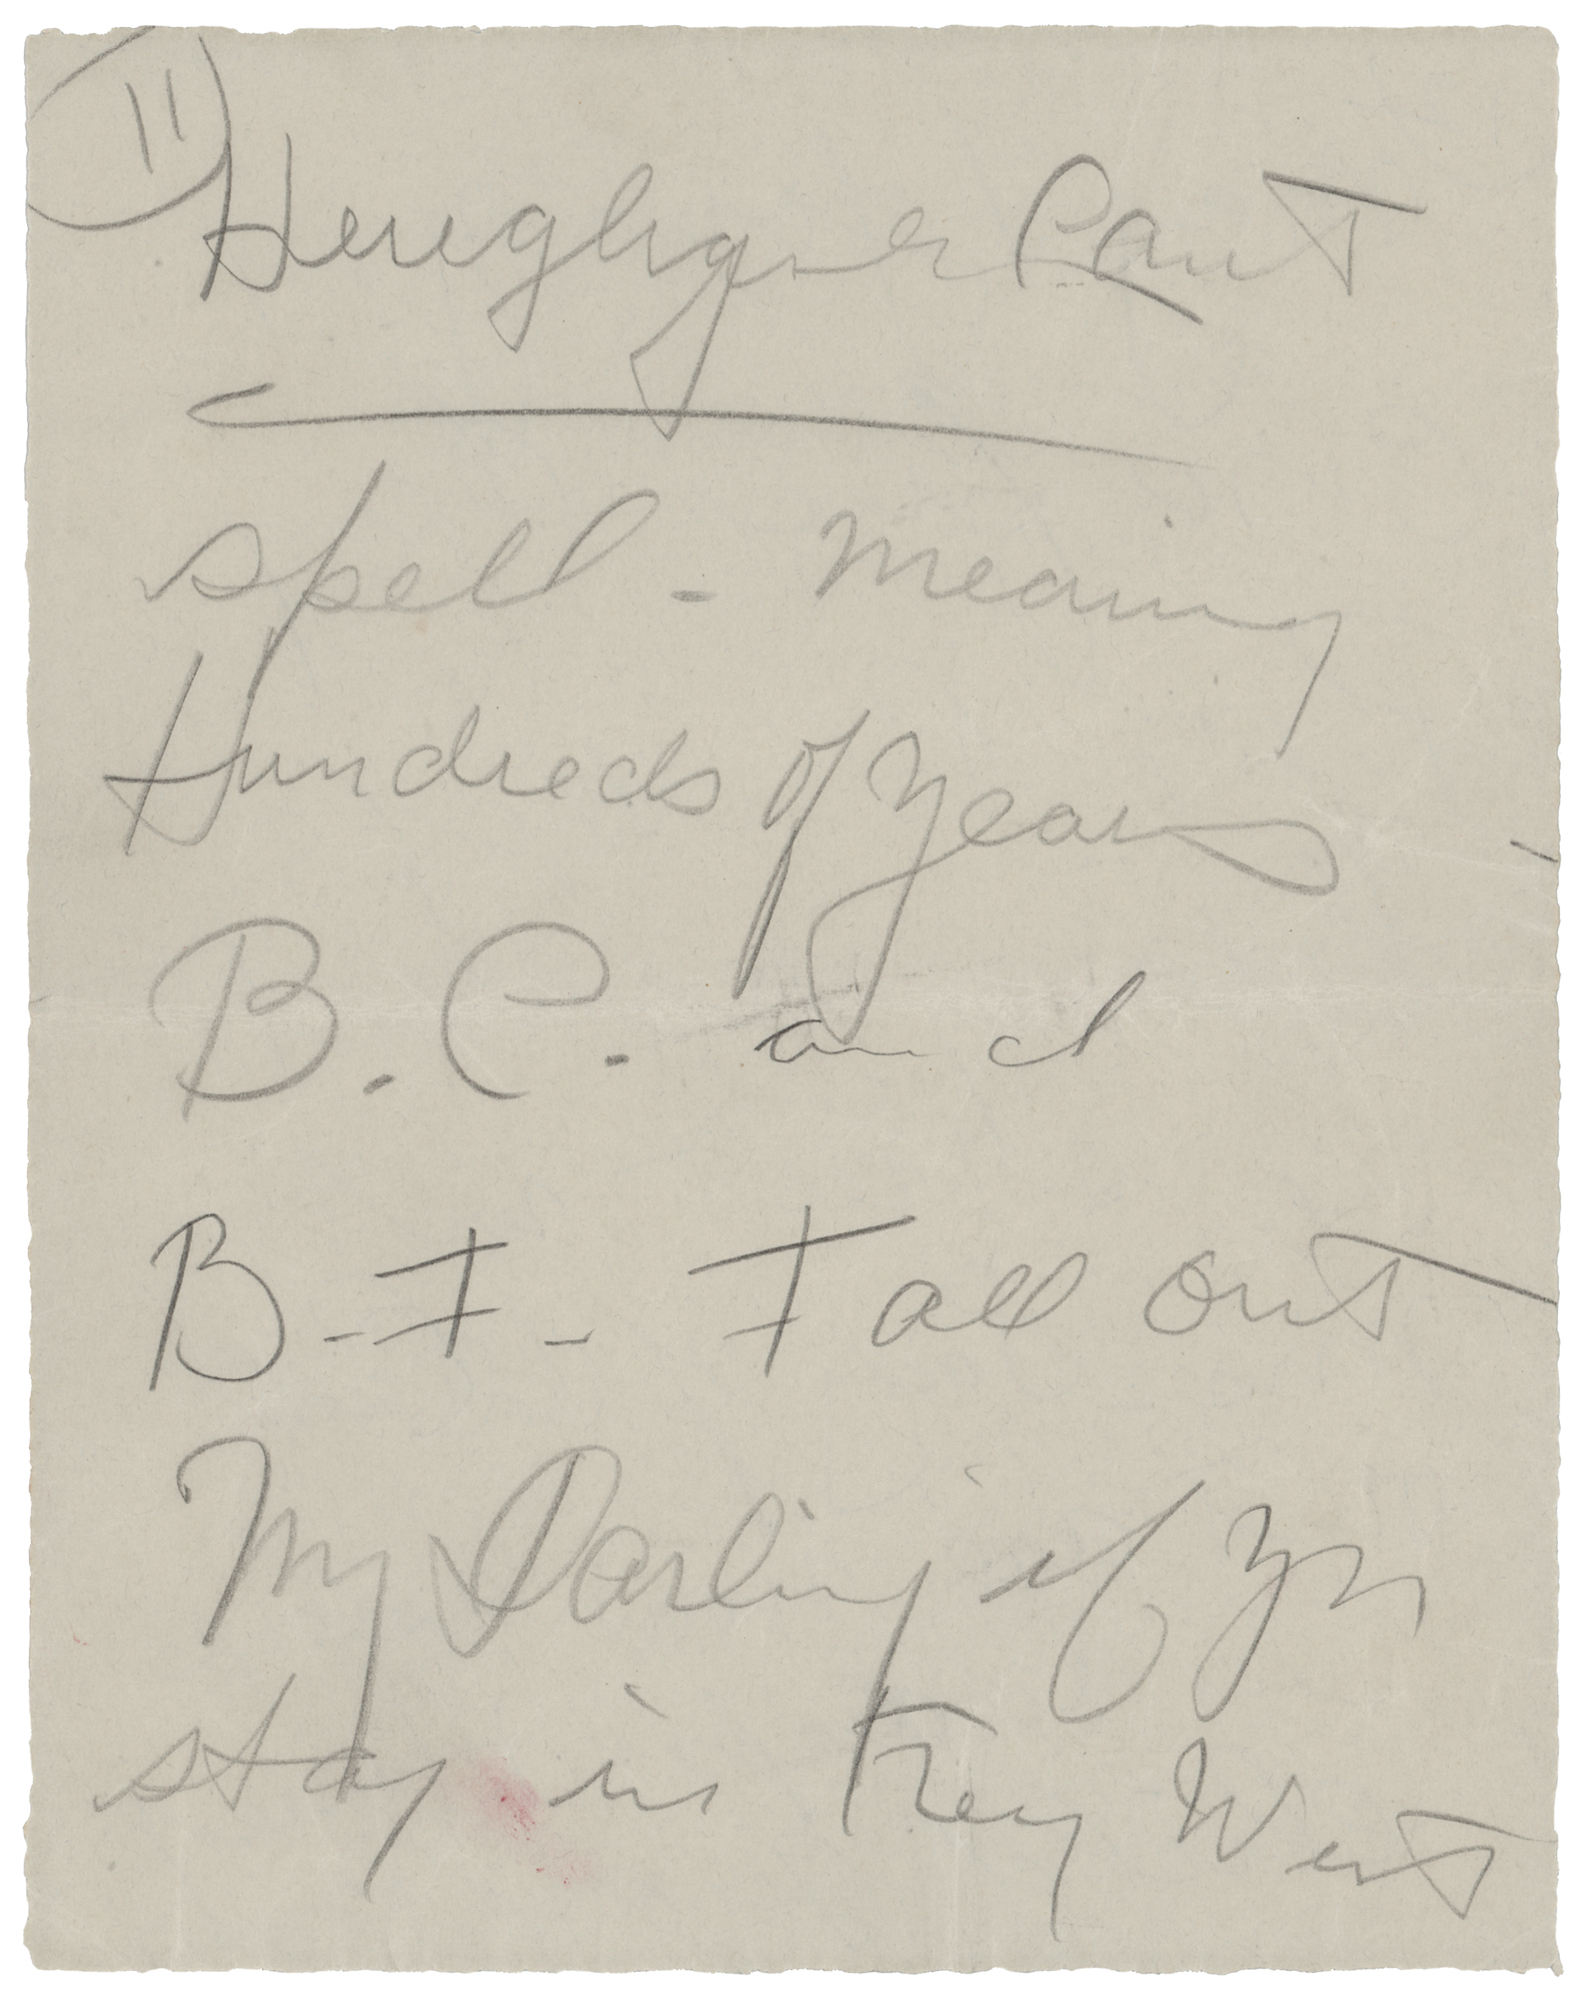 11
Hereglyger Cant
spell - meaning
Hundreds of Years
B. C. and
B. F. Fall out
My Darling if Yr
stay in Key West